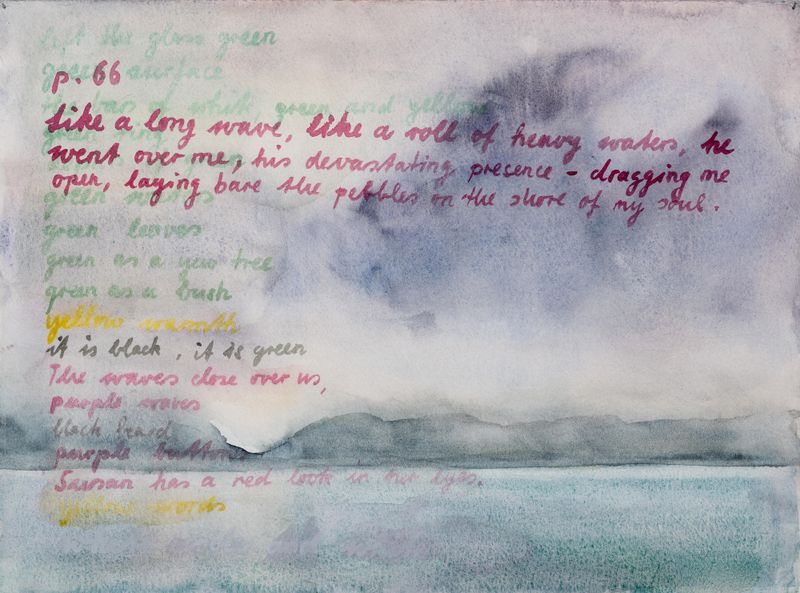 left the glass green
green surface
p. 66
the bars of white, green and yellow
Like a long wave, like a roll of heavy waters, he
went over me, his devastating presence – dragging me
open, laying bare the pebbles on the shore of my soul.
green
green leaves
green as a yew tree
green as a bush
yellow warmth
it is black, it is green
The waves close over us,
purple waves
black beard
purple buttons
Sawsan has a red look in her eyes.
yellow words